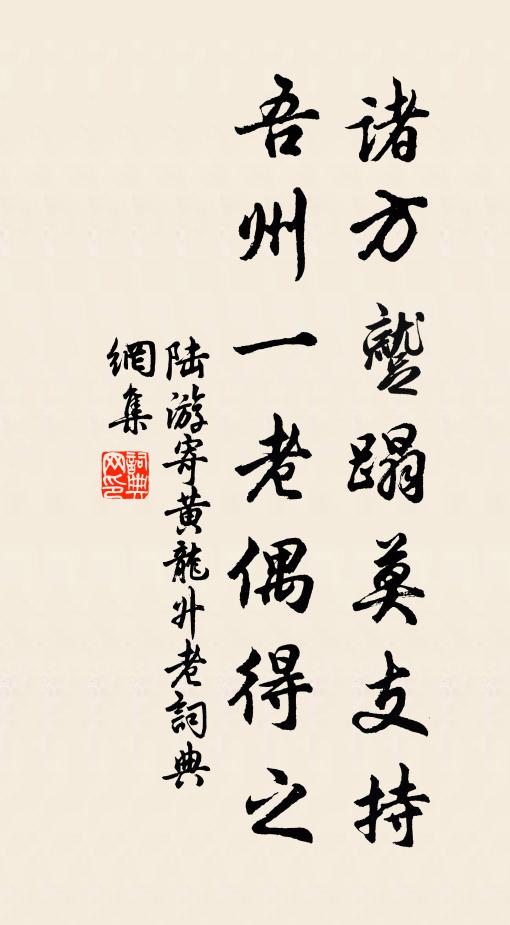 诸方蹵蹋莫支持
吾州一老偶得之
陆游寄黄龍升老詞典
網集
詞典網印